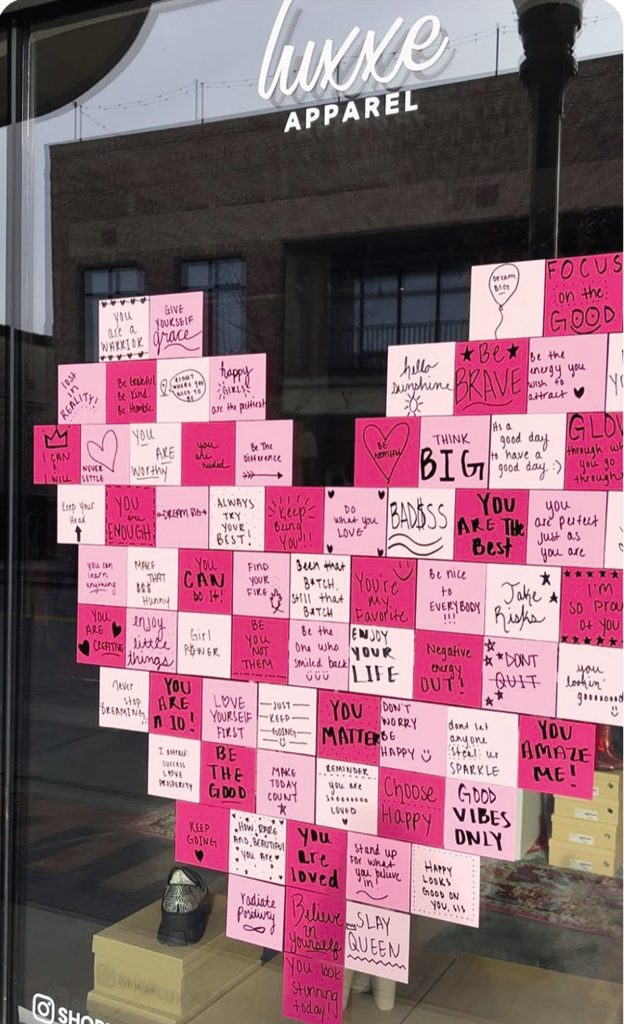 luxxe
APPAREL
Dream
BIG
FOCUS
on the
GOOD
YOU
are a
WARRIOR
GIVE
YOURSELF
grace
hello
sunshine
Be
BRAVE
Be the
energy you
wish to
attract
lost in
REALITY!
Be Grateful
Be Kind.
Be Humble.
RIGHT
WHERE YOU
NEED TO
happy
GIRLS
are the prettiest
I CAN
&
I WILL
NEVER
SETTLE
YOU
ARE
Worthy
you
are
needed
Be The
Difference
BE
THINK
BIG
It's a
good day
to have a
good day :)
GLOW
through what
you go
through
Keep your
Head
YOU
are
ENOUGH
DREAM BIG
ALWAYS
TRY
YOUR
BEST!
Keep
Being
YOU!!
Do
what you
LOVE
BAD$$
YOU
ARE The
Best
you
are perfect
just as
you are
you can
learn
anything
MAKE
THAT
$$$
Hunny
YOU
CAN
DO IT!
FIND
YOUR
FIRE
Been that
B*TCH,
Still that
BATCH
You're
my
Favorite
Be nice
to
EVERYBODY
!!!
Take
Risks
I'M
SO PROU
OF YOU
YOU
ARE
CREATING
enjoy
little
things
Girl
POWER
BE
YOU
NOT
THEM
Be the
one who
smiled back
ENJOY
YOUR
LIFE
Negative
energy
OUT!
DONT
QUIT
you
lookin'
goooooood
Never
stop
DREAMING
YOU
ARE
A 10!
LOVE
YOURSELF
FIRST
JUST
KEEP
GOING
YOU
MATTER
DON'T
WORRY
BE
HAPPY
dont let
anyone
steal ur
SPARKLE
YOU
AMAZE
ME!
I attract:
SUCCESS
LOVE
PROSPERITY
BE
THE
GOOD
MAKE
TODAY
COUNT
REMINDER
you are
soooooooo
LOVED
Choose
Happy
GOOD
VIBES
ONLY
KEEP
GOING
HOW RARE
AND BEAUTIFUL
YOU ARE
YOU
are
loved
Stand up
FOR what
you believe
in
HAPPY
LOOKS
GOOD ON
YOU, SIS
radiate
Positivity
Believe
in
yourself
SLAY
QUEEN
You look
Stunning
today!